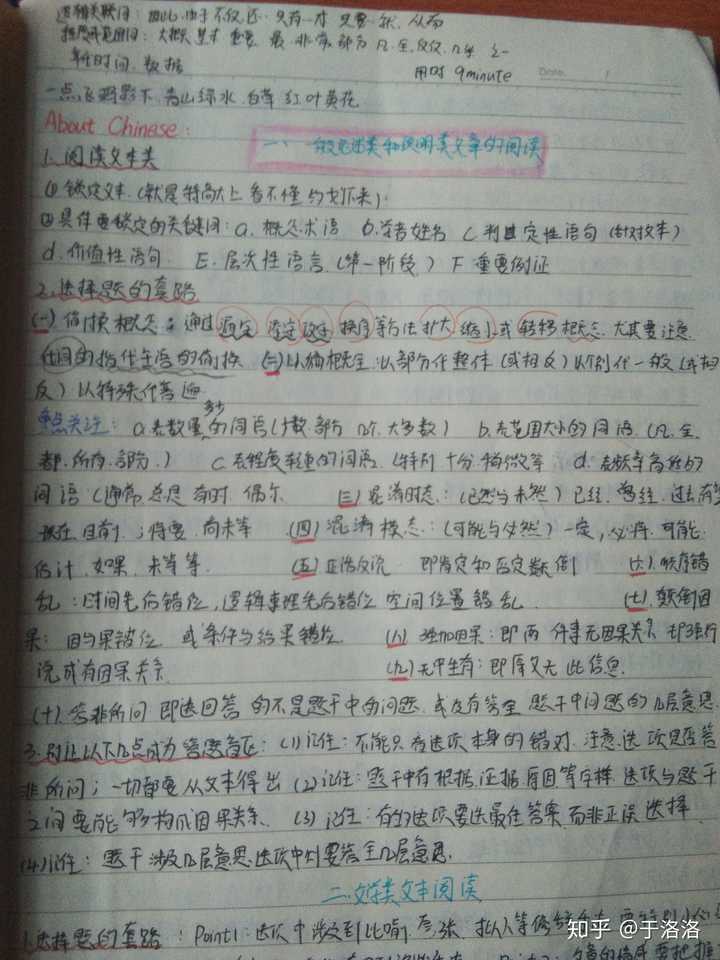 逻辑关联词：因此.由于.不仅.还.只有一才.只要一就.从而
程度.范围词：大概.基本.重要.最.非常.部分.凡.全.仅仅.几乎.之一
时间、数据 用时 9minute Date.
一点飞鸿影下.青山绿水.白草红叶黄花
About Chinese：
一、一般论述类和说明类文章的阅读
1. 阅读文本类
① 锁定文本.(就是特高大上看不懂的划下来)
②具体要锁定的关键词：a. 概念术语 b.学者姓名 C 判断定性语句 (针对文本)
d. 价值性语句 E. 层次性语言.(第一阶段) F 重要例证
2.选择题的套路
(一) 偷换概念：通过 换序等方法扩大缩小或转移概念.尤其要注意
代词的指代主语的偷换 (二)以偏概全：以部分代整体(或相反)以个别代一般(或相
反)以特殊代普遍
重点关注：a.表数量多少的词语(少数.部分.几个.大多数) b.表范围大小的词语.(凡.全.
都.所有.部分.) C 表程度轻重的词语.(特别.十分.稍微等 d.表频率高低的
词语(通常.总是.有时.偶尔 (三)混淆时态：(已然与未然)已经.曾经.过去有
现在.目前.；将要.尚未等 (四)混淆模态：(可能与必然)一定,必将.可能.
估计.如果.未等等. (五)正话反说 即肯定和否定颠倒 (六).顺序错
乱：时间先后错位,逻辑事理先后错位 空间位置错乱. (七).颠倒因
果：因与果错位 或条件与结果错位 (八)强加因果：即两件事无因果关系却强行
说成有因果关系. (九)无中生有：即原文无此信息.
(十).答非所问 即选回答的不是题干中的问题.或没有答全题干中问题的几层意思.
3.别让以下几点成为答题善后：(1)记住：不能只看选项本身的错对.注意选项是否答
非所问；一切都要从文本得出 (2)记住：题干中有根据.证据.原因等字样.选项与题干
之间要能够构成因果关系. (3)记住：有的选项要选最佳答案.而非正误选择
(4)记住：题干涉及几层意思.选项中则要答全几层意思.
二.文学类文本阅读
1.选择题的套路：Point1：选项中涉及到比喻.夸张.拟人等修辞
知乎 @于洛洛